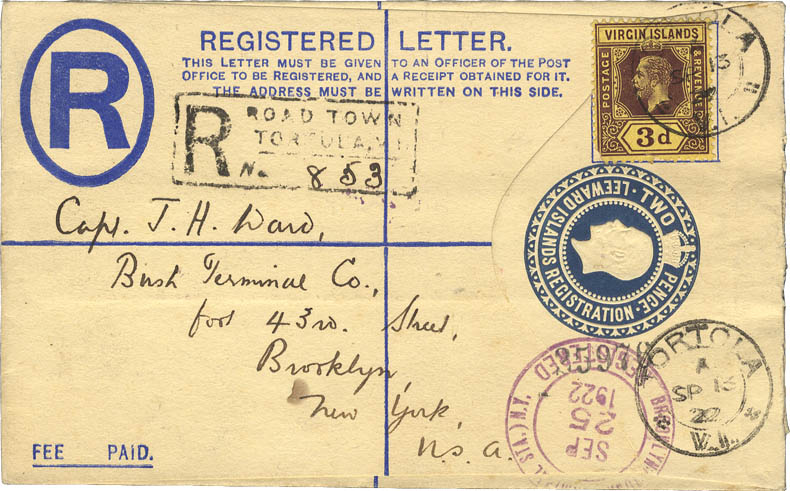 R
REGISTERED LETTER.
THIS LETTER MUST BE GIVEN TO AN OFFICER OF THE POST
OFFICE TO BE REGISTERED, AND A RECEIPT OBTAINED FOR IT.
THE ADDRESS MUST BE WRITTEN ON THIS SIDE.
R
ROAD TOWN
TORTOLA, V.I.
No. 853
VIRGIN ISLANDS
POSTAGE & REVENUE
3d
SP 13
LEEWARD ISLANDS REGISTRATION TWO PENCE
Capt. J. H. Ward,
Bush Terminal Co.,
foot 43rd. Street,
Brooklyn,
New York,
U.S.A.
TORTOLA
A
SP 13
22
W.I.
REGISTERED
BROOKLYN, N.Y.
SEP
25
1922
FEE PAID.